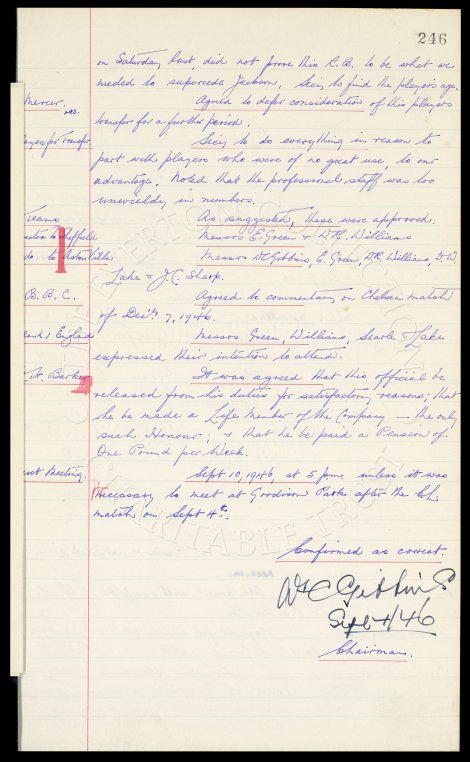 246
on Saturday last, did not prove this R.B. to be what we
needed to supercede Jackson. Secy to find the players age.
Mercer.
Agreed to defer consideration of this players
transfer for a further period.
ayers for Transfer
Secy to do everything in reason to
part with players who were of no great use, to our
advantage. Noted that the professional staff was too
unwieldy in numbers.
Teams
As suggested, these were approved.
ectors to Sheffield
Messrs E. Green & W.R. Williams
do. to Aston Villa
Messrs WC Gibbins, E. Green, WR. Williams, F.W.
Lake & J.C. Sharp.
B.B.C.
Agreed to commentary on Chelsea match
of Decr. 7, 1946.
land v England
Messrs Green, Williams, Searle & Lake
expressed their intention to attend.
H. Barker
It was agreed that this official be
released from his duties for satisfactory reasons; that
he be made a Life Member of the Company – the only
such Honour; & that he be paid a Pension of
One Pound per Week.
ext Meeting.
Sept 10, 1946, at 5 pm. unless it was
necessary to meet at Goodison Park after the CL
match on Sept 4th.
Confirmed as correct.
WC Gibbins
Sept 4/46
Chairman.
EVERTON COLLECTION
CHARITABLE TRUST